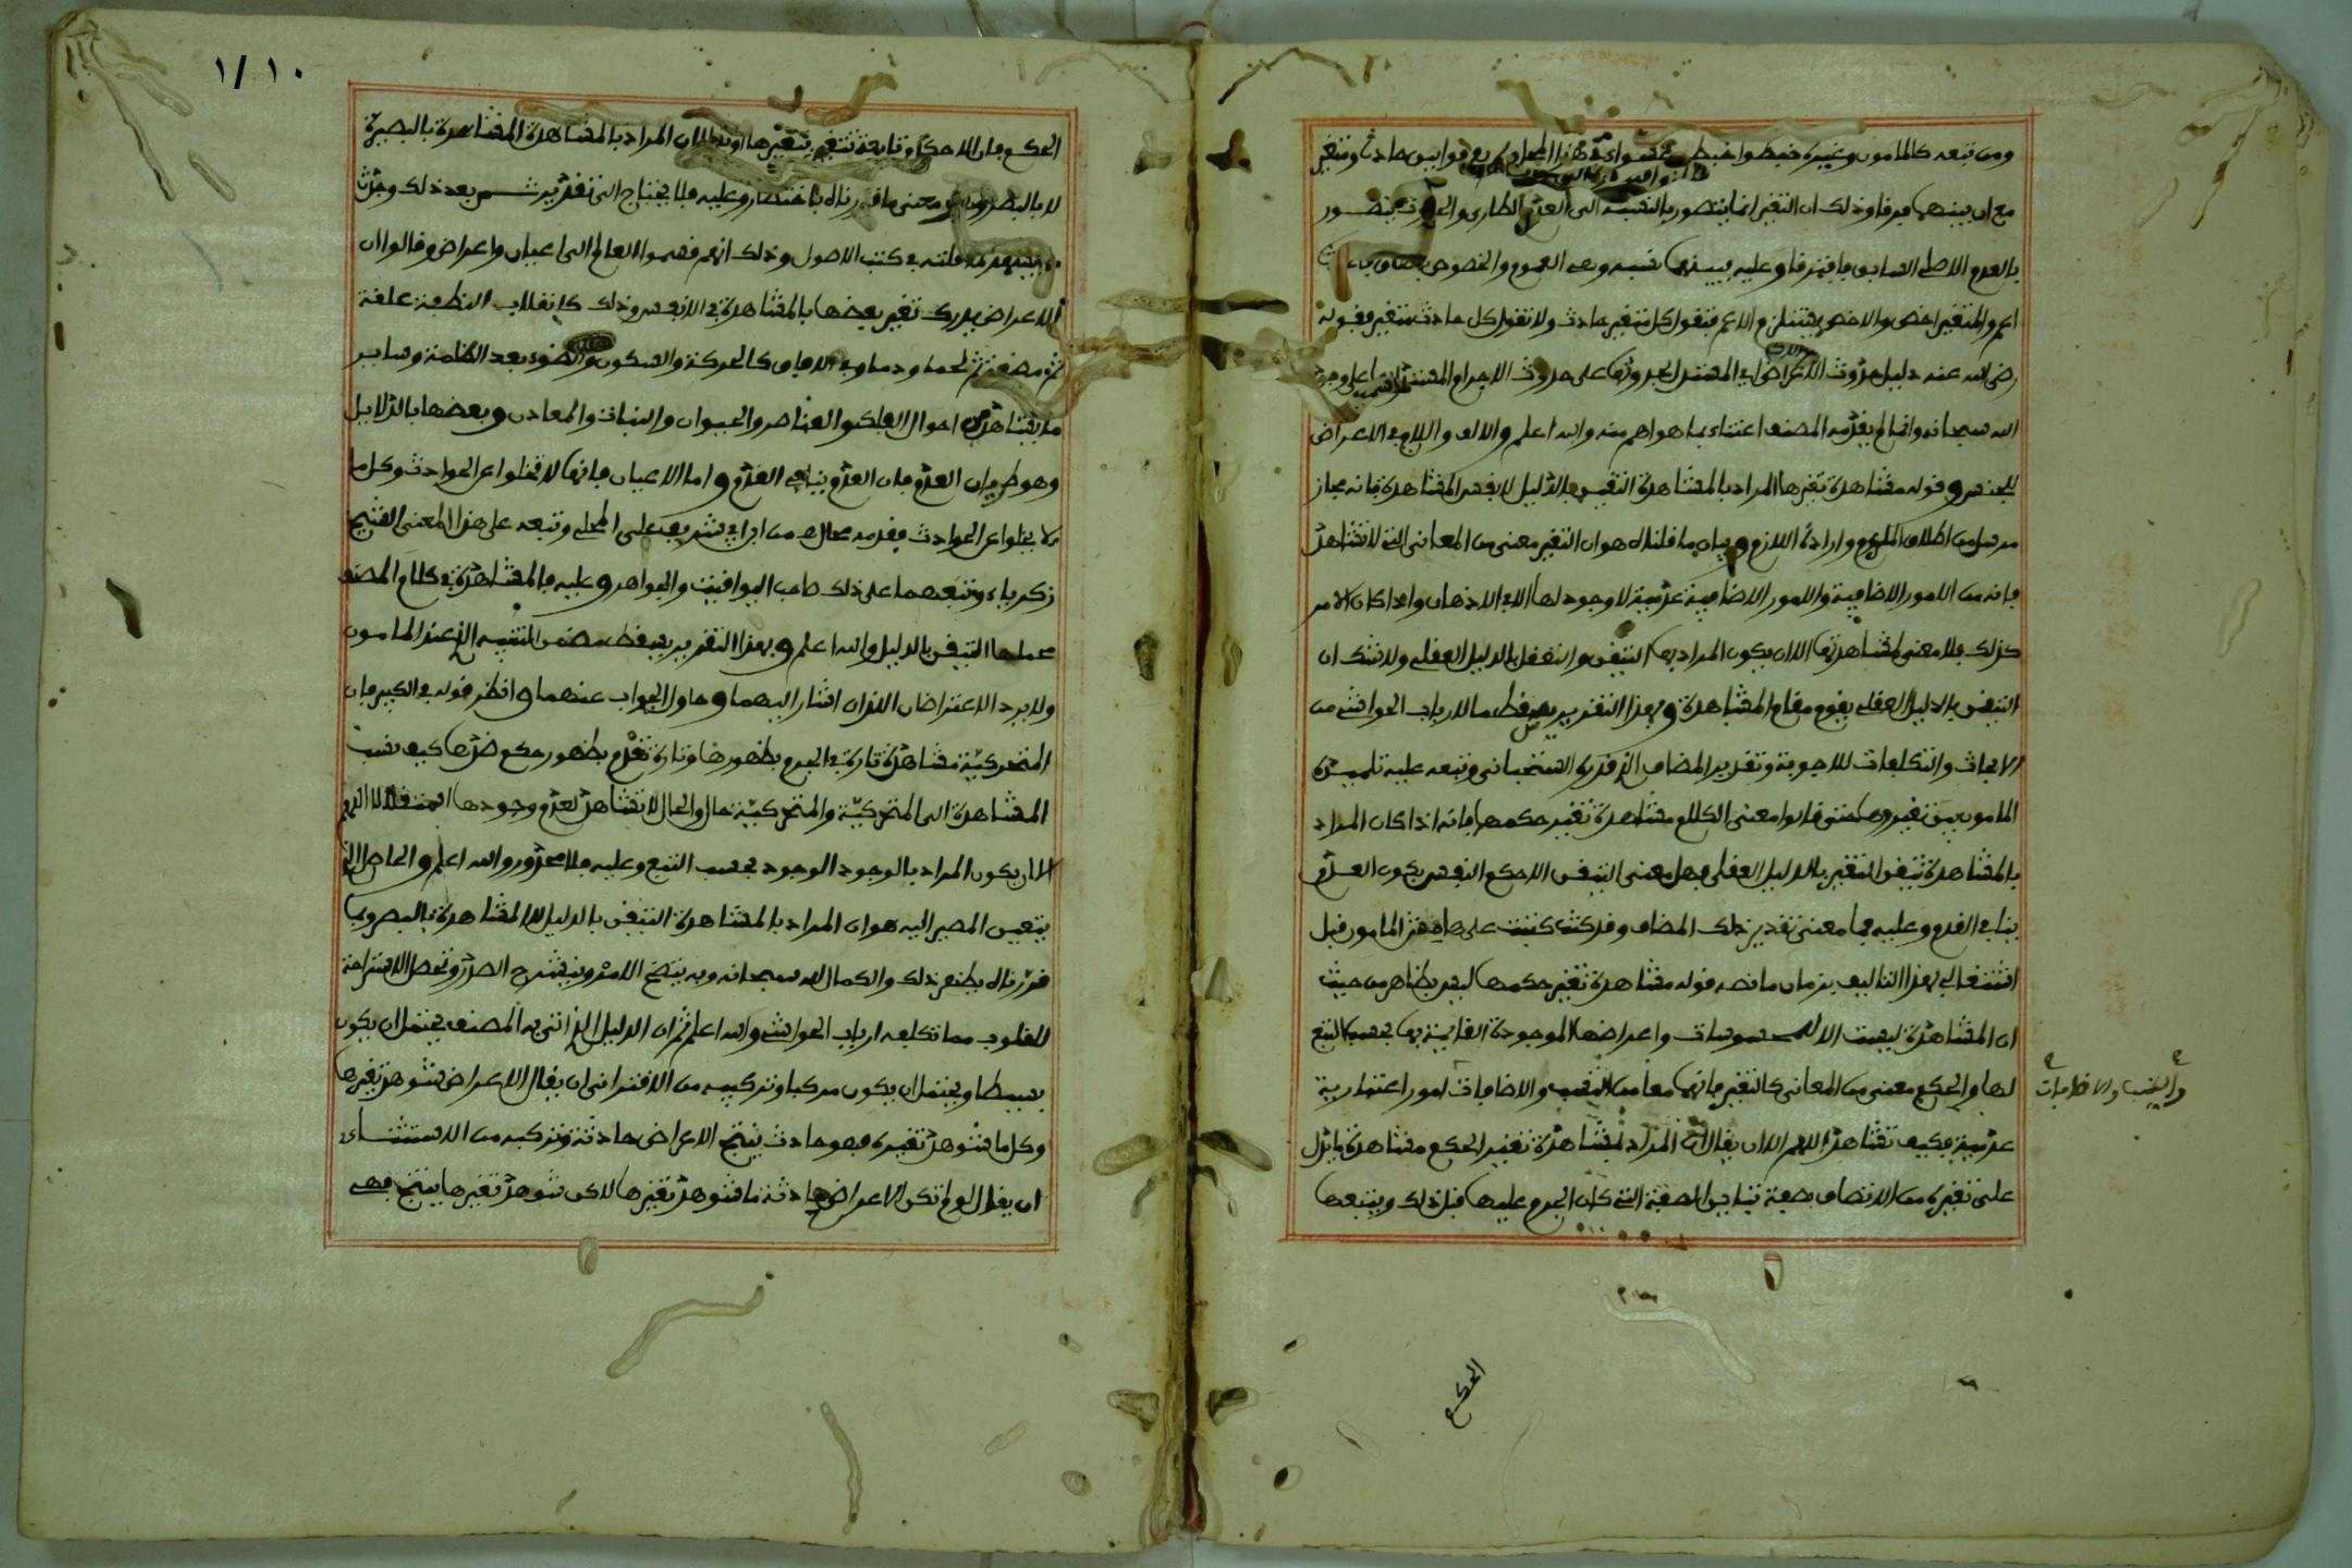 ومن تبعه كالمامون وغيره خبطوا خبط عشواء في هذا المحل ولم يفرقوا بين حادث ومتغير
مع ان بينهما فرقا وذلك ان التغير انما يتصور بالنسبة الى العدم الطارئ والحدوث يتصور
بالعدم الاصلي السابق فافترقا وعليه فبينهما نسبة وهي العموم والخصوص
اعم والمتغير اخص والاخص يستلزم الاعم فتقول كل متغير حادث ولا تقول كل حادث متغير فقوله
رضي الله عنه دليل حدوث الاعراض اي المستدل بحدوثها على حدوث الاجرام على وجود
الله سبحانه وانما لم يقدمه المصنف اعتناء بما هو اهم منه والله اعلم والالف واللام في الاعراض
للجنس وقوله مشاهدة تغيرها المراد بالمشاهدة التيقن بالدليل لا نفس المشاهدة فانه مجاز
مرسل من اطلاق الملزوم وارادة اللازم وبيان ما قلناه هو ان التغير معنى من المعاني التي لا تشاهد
فانه من الامور الاضافية والامور الاضافية عدمية لا وجود لها الا في الاذهان واذا كان الامر
كذلك فلا معنى لمشاهدتها الا ان يكون المراد بها التيقن والتعقل بالدليل العقلي ولا شك ان
التيقن بالدليل العقلي يقوم مقام المشاهدة وبهذا التقرير يسقط ما لارباب الحواشي من
الابحاث والتكلفات للاجوبة وتقدير المضاف الذي قدره السجتاني وتبعه عليه تلميذه
المامون بين تغير وها حتى قالوا معنى الكلام مشاهدة تغير حكمها فانه اذا كان المراد
بالمشاهدة تيقن التغير بالدليل العقلي فهل معنى التيقن الا حكم النفس بكون العدم
ينافي القدم وعليه فما معنى تقدير ذلك المضاف وقد كنت كتبت على هامش المامون قبل
اشتغالي بهذا التاليف بزمان ما نصه قوله مشاهدة تغير حكمها ليس بظاهر من حيث
ان المشاهدة ليست الا للمحسوسات واعراضها الموجودة القائمة بها بحسب التبع
لها والحكم معنى من المعاني كالتغير فانهما معا من النسب والاضافات امور اعتبارية
عدمية فكيف تشاهد اللهم الا ان يقال ان المراد بمشاهدة تغير الحكم مشاهدة ما يدل
على تغيره من الاتصاف بصفة تنافي الصفة التي كان الجرم عليها قبل ذلك ويتبعها
والنسب والاضافات
الحكم
١/١٠
الحكم فان الاحكام تابعة تتغير بتغيرها او نقول ان المراد بالمشاهدة المشاهدة بالبصيرة
لا بالبصر وهو معنى ما قررناه باختصار وعليه فلا يحتاج الى تقدير شيء بعد ذلك وجدت
ما يشهد لما قلته في كتب الاصول وذلك انهم قسموا العالم الى اعيان واعراض وقالوا ان
الاعراض يدرك تغير بعضها بالمشاهدة في الانفس وذلك كانقلاب النطفة علقة
ثم مضغة ثم لحما ودما وفي الافاق كالحركة والسكون والضوء بعد الظلمة وساير
ما يشاهد من احوال الافلاك والعناصر والحيوان والنبات والمعادن وبعضها بالدلايل
وهو طريان العدم فان العدم ينافي القدم واما الاعيان فانها لا تخلوا عن الحوادث وكل ما
لا يخلوا عن الحوادث فقدمه محال من ابن ابي شريف على المحلي وتبعه على هذا المعنى الشيخ
زكرياء وتبعهما على ذلك صاحب اليواقيت والجواهر وعليه فالمشاهدة في كلام المصنف
محملها التيقن بالدليل والله اعلم وبهذا التقرير يسقط مضمن التنبيه الذي عند المامون
ولا يرد الاعتراضان اللذان اشار اليهما وحاول الجواب عنهما وانظر قوله في الكبير فان
المتحركية مشاهدة تارة في الجرم بظهورها وتارة تعدم بظهور حكم ضدها كيف نسب
المشاهدة الى المتحركية والمتحركية حال والحال لا تشاهد لعدم وجودها استقلالا اللهم
الا ان يكون المراد بالوجود الوجود بحسب التبع وعليه فلا محذور والله اعلم والحاصل الذي
يتعين المصير اليه هو ان المراد بالمشاهدة التيقن بالدليل لا المشاهدة بالبصر وبما
قررناه يظهر ذلك والكمال لله سبحانه وبه يتضح الامر وينشرح الصدر وتحصل الاستراحة
للقلوب مما تكلفه ارباب الحواشي والله اعلم ثم ان الدليل الذي اتى به المصنف يحتمل ان يكون
بسيطا ويحتمل ان يكون مركبا وتركيبه من الاقتراني ان يقال الاعراض شوهد تغيرها
وكل ما شوهد تغيره فهو حادث ينتج الاعراض حادثة وتركيبه من الاستثناءي
ان يقال لو لم تكن الاعراض حادثة ما شوهد تغيرها لاكن شوهد تغيرها ينتج فهي